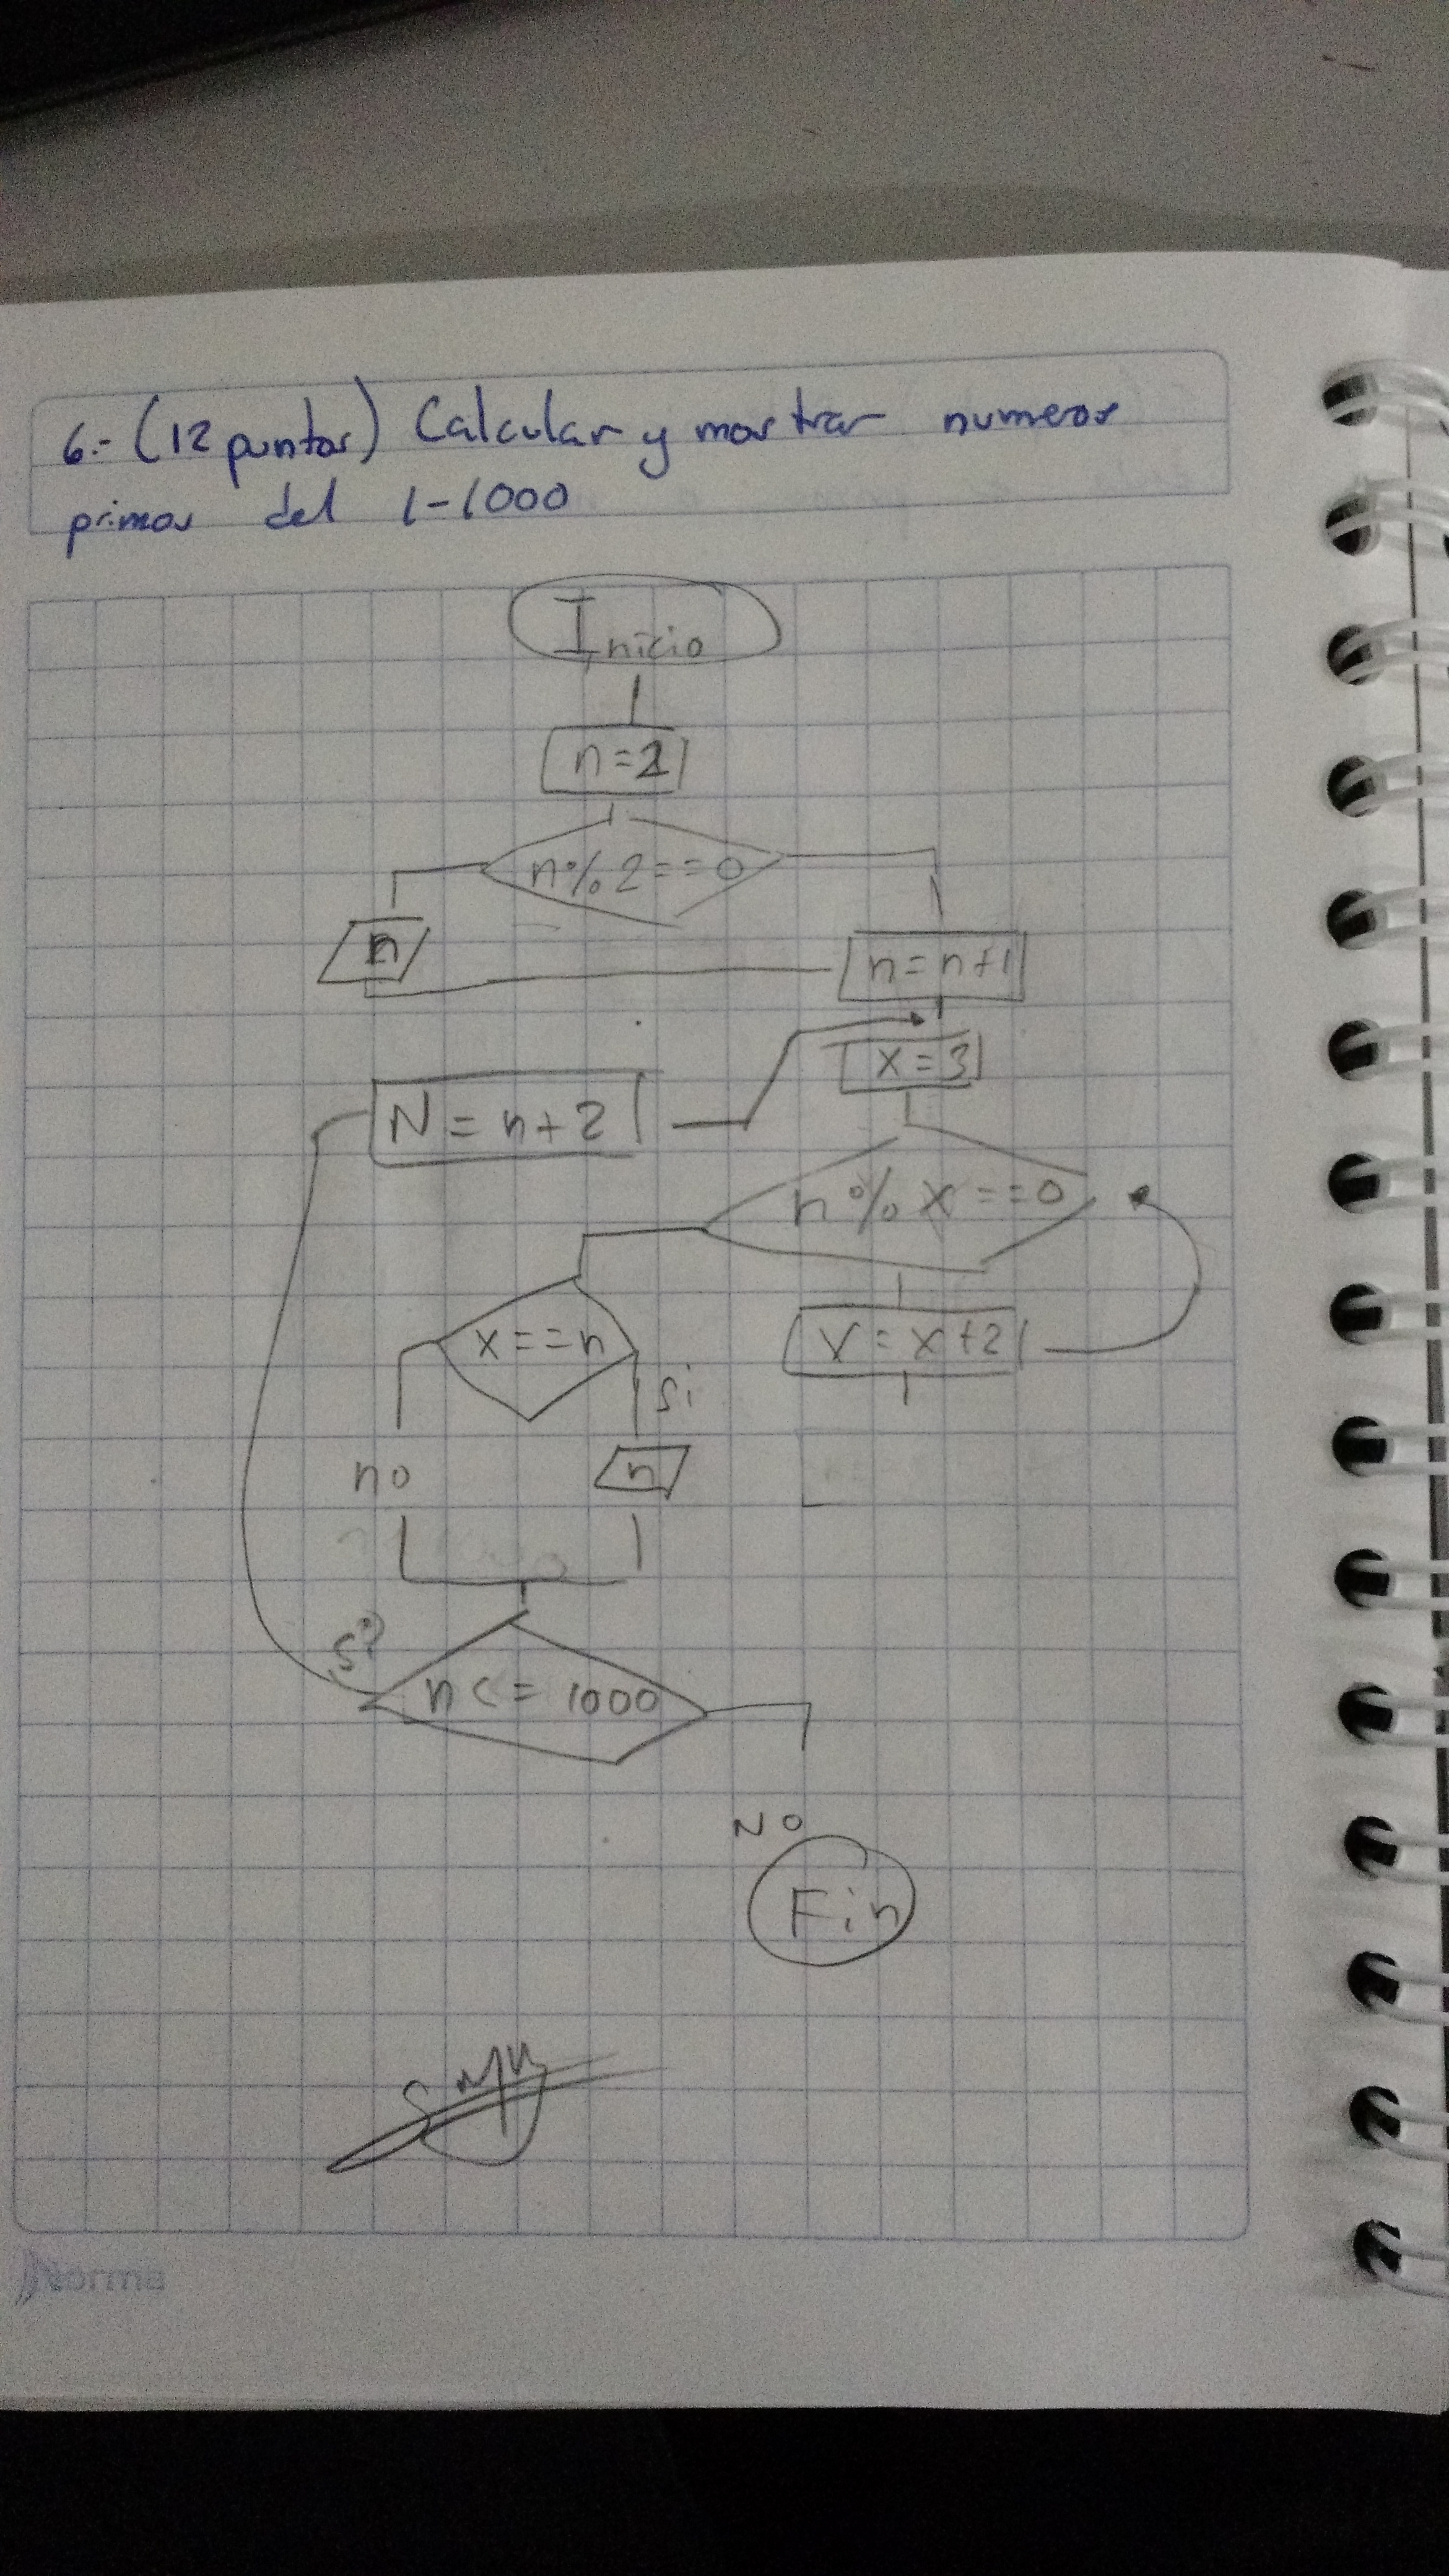 6.- (12 puntos) Calcular y mostrar numeros
primos del 1-1000
Inicio
n=2
n%2==0
n
n=n+1
x=3
N=n+2
n%x==0
x==n
x=x+2
si
no
n
si
n<=1000
No
Fin
Norma